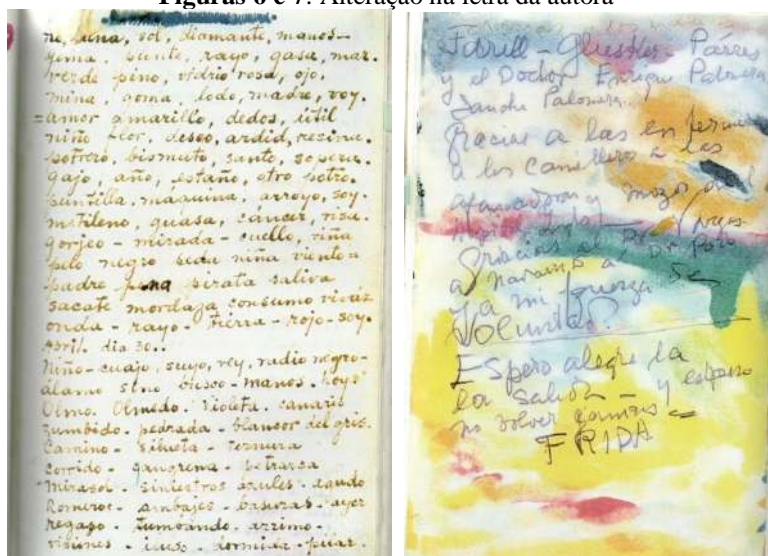 Figuras 6 e 7. Alteração na letra da autora
luna, sol, diamante, manos-
yema, punto, rayo, gasa, mar.
verde pino, vidrio rosa, ojo,
mina, goma, lodo, madre, voy.
=amor amarillo, dedos, útil
niño flor, deseo, ardid, resina.
potrero, bismuto, santo, sopera.
gajo, año, estaño, otro potro.
puntilla, máquina, arroyo, soy.
metileno, guasa, cáncer, risa.
gorjeo - mirada - cuello, viña
pelo negro seda niña viento =
padre pena pirata saliva
sacate mordaza consumo vivaz
onda - rayo - tierra - rojo - soy.
Abril. dia 30..
Niño - cuajo, suyo, rey, radio negro-
álamo sino busco - manos. hoy.
Olmo. Olmedo. Violeta. canario
zumbido. pedrada - blancor del gris.
Camino - silueta - ternura
corrido - gangrena - petrarca
mirasol - siniestros azules. agudo
Romero - ambajes - basuras - ayer
regazo - tumbando. arrimo -
visiones - iluso - dormida - pilar.
Farill - Glusker - Párres
y el Doctor Enrique Palomera
Sanchez Palomera
Gracias a las enfermeras
a los camilleros a las
afanadoras y mozos
Gracias al Dr. Vargas
a Navarro a Dr. Polo
y a mi fuerza de
Voluntad.
Espero alegre la
salida - y espero
no volver jamás -
FRIDA